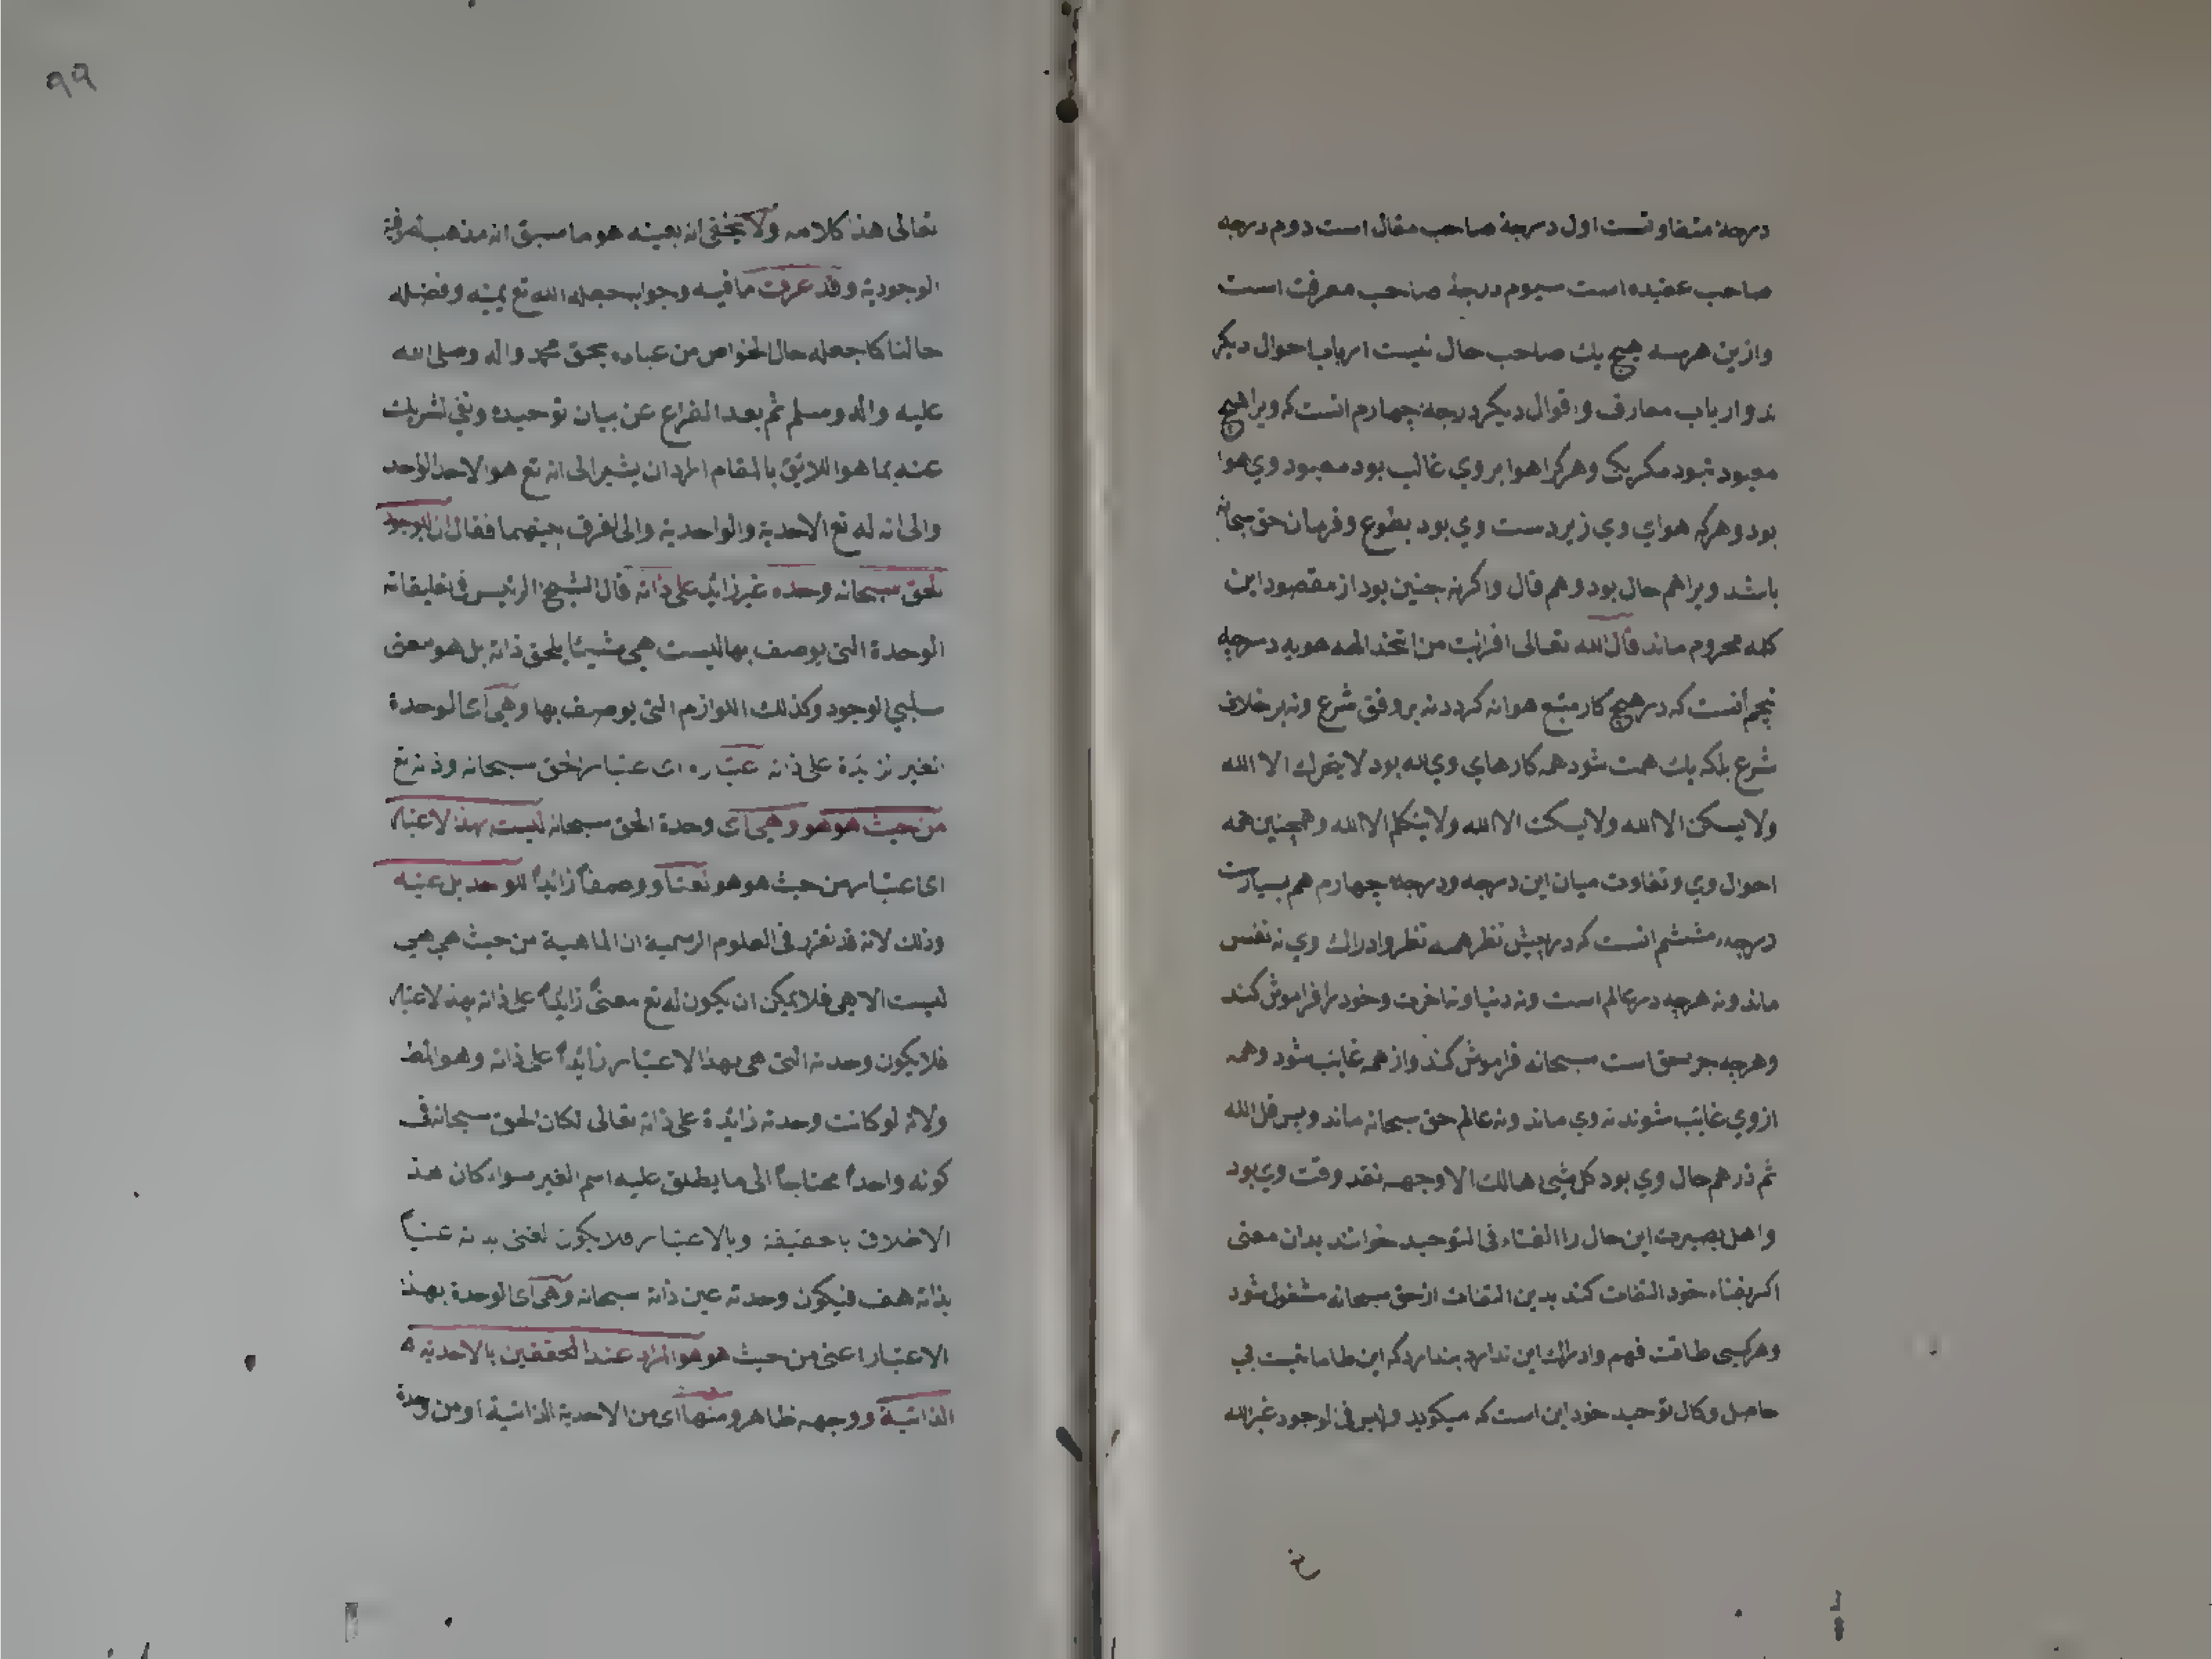 درجهٔ متفاوتست اول درجهٔ صاحب مقال است دوم درجه
صاحب عقیده است سیوم درجهٔ صاحب معرفت است
وازین هرسه هیچ یك صاحب حال نیست ارباب احوال دیکر
ند وارباب معارف واقوال دیکر درجهٔ چهارم انست که ویرا هیچ
معبود نبود مکر یکی وهرکرا هوا بر وي غالب بود معبود وي هوا
بود وهرکه هواي وي زیردست وي بود بطوع وفرمان حق سبحانه
باشد ویرا هم حال بود وهم قال واکرنه چنین بود از مقصود این
کله محروم ماند قال الله تعالی افرایت من اتخذ الهه هویه درجه
پنجم آنست که در هیچ کار متبع هوا نه کردد نه بر وفق شرع ونه بر خلاف
شرع بلکه یك همت شود همه کارهاي وي لله بود لا یتحرك الا الله
ولا یسکن الا الله ولا یسکت الا الله ولا یتکلم الا الله وهمچنین همه
احوال وي وتفاوت میان این درجه ودرجه چهارم هم بسیارست
درجه ششم انست که در پیش نظر همه نظر وادراك وي نه نفس
ماند ونه هرچه در عالم است ونه دنیا ونه اخرت وخود را فراموش کند
وهرچه جز حق است سبحانه فراموش کند واز همه غایب شود وهمه
ازوي غایب شوند نه وي ماند ونه عالم حق سبحانه ماند وبس قل الله
ثم ذرهم حال وي بود کل شئ هالك الا وجهه نقد وقت وي بود
واهل بصیرت این حال را الفناء فی التوحید خوانند بدان معنی
اکر بفناء خود التفات کند بدین التفات از حق سبحانه مشغول شود
وهرکسی طاقت فهم وادراك این ندارد پندارد که این طاماتیست بي
حاصل وکمال توحید خود این است که میکوید ولیس فی الوجود غیر الله
٩٩
تعالی هذا کلامه ولا یخفی انه بعینه هو ما سبق انه مذهب لفرقة
الوجودیة وقد عرفت ما فیه وجوابه جعله الله تع بمنه وفضله
حالنا کما جعله حال الخواص من عباده بحق محمد واله وصلی الله
علیه واله وسلم ثم بعد الفراغ عن بیان توحیده ونفی الشریك
عنه بما هو اللایق بالمقام اراد ان یشیر الی انه تع هو الاحد الواحد
والی انه له تع الاحدیة والواحدیة والی الفرق بینهما فقال ان الوجود
للحق سبحانه وحده غیر زائد علی ذاته قال الشیخ الرئیس فی تعلیقاته
الوحدة التی یوصف بها لیست هی شیئا یلحق ذاته بل هو معنی
سلبي الوجود وکذلك اللوازم التی یوصف بها وهی ای الوحدة
الغیر الزایدة علی ذاته عتباره ای اعتبار الحق سبحانه وذاته تع
من حیث هو هو وهی ای وحدة الحق سبحانه لیست بهذا الاعتبار
ای اعتبار من حیث هو هو نعتا ووصفاً زائداً للواحد بل عینه
وذلك لانه قد تقرر فی العلوم الرسمیة ان الماهیة من حیث هي هي
لیست الا هی فلا یمکن ان یکون له تع معنیً زایداً علی ذاته بهذا الاعتبار
فلا یکون وحدته التی هی بهذا الاعتبار زائداً علی ذاته وهو المط
ولانه لو کانت وحدته زائدة علی ذاته تعالی لکان الحق سبحانه فی
کونه واحداً محتاجاً الی ما یطلق علیه اسم الغیر سواء کان هذا
الاطلاق بالحقیقة وبالاعتبار فلا یکون الغنی بذاته غنیاً
بذاته هف فیکون وحدته عین ذاته سبحانه وهی ای الوحدة بهذا
الاعتبار اعنی من حیث هو هو المراد عند المحققین بالاحدیة
الذاتیة ووجهه ظاهر ومنها ای من الاحدیة الذاتیة او من وحدة